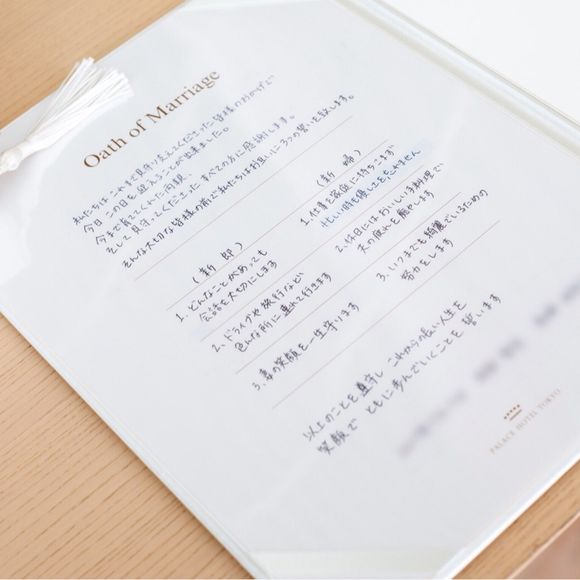 Oath of Marriage
私たちは これまで見守り支えてくださった皆様のおかげで
今日 この日を迎えることが出来ました。
今まで育ててくれた両親、
そして見守ってくださった すべての方に感謝します。
そんな大切な皆様の前で私たちはお互いに3つの誓いを致します。
(新 郎)
1. どんなことがあっても
会話を大切にします
2. ドライブや旅行など
色んな所に連れて行きます
3. 妻の笑顔を一生守ります
(新 婦)
1. 仕事を家庭に持ちこまず
忙しい時も優しさをたやせません
2. 休日にはおいしい手料理で
夫の疲れを癒やします
3. いつまでも綺麗でいるための
努力をします
以上のことを 守り これからの長い人生を
笑顔で ともに歩んでいくことを 誓います
PALACE HOTEL TOKYO